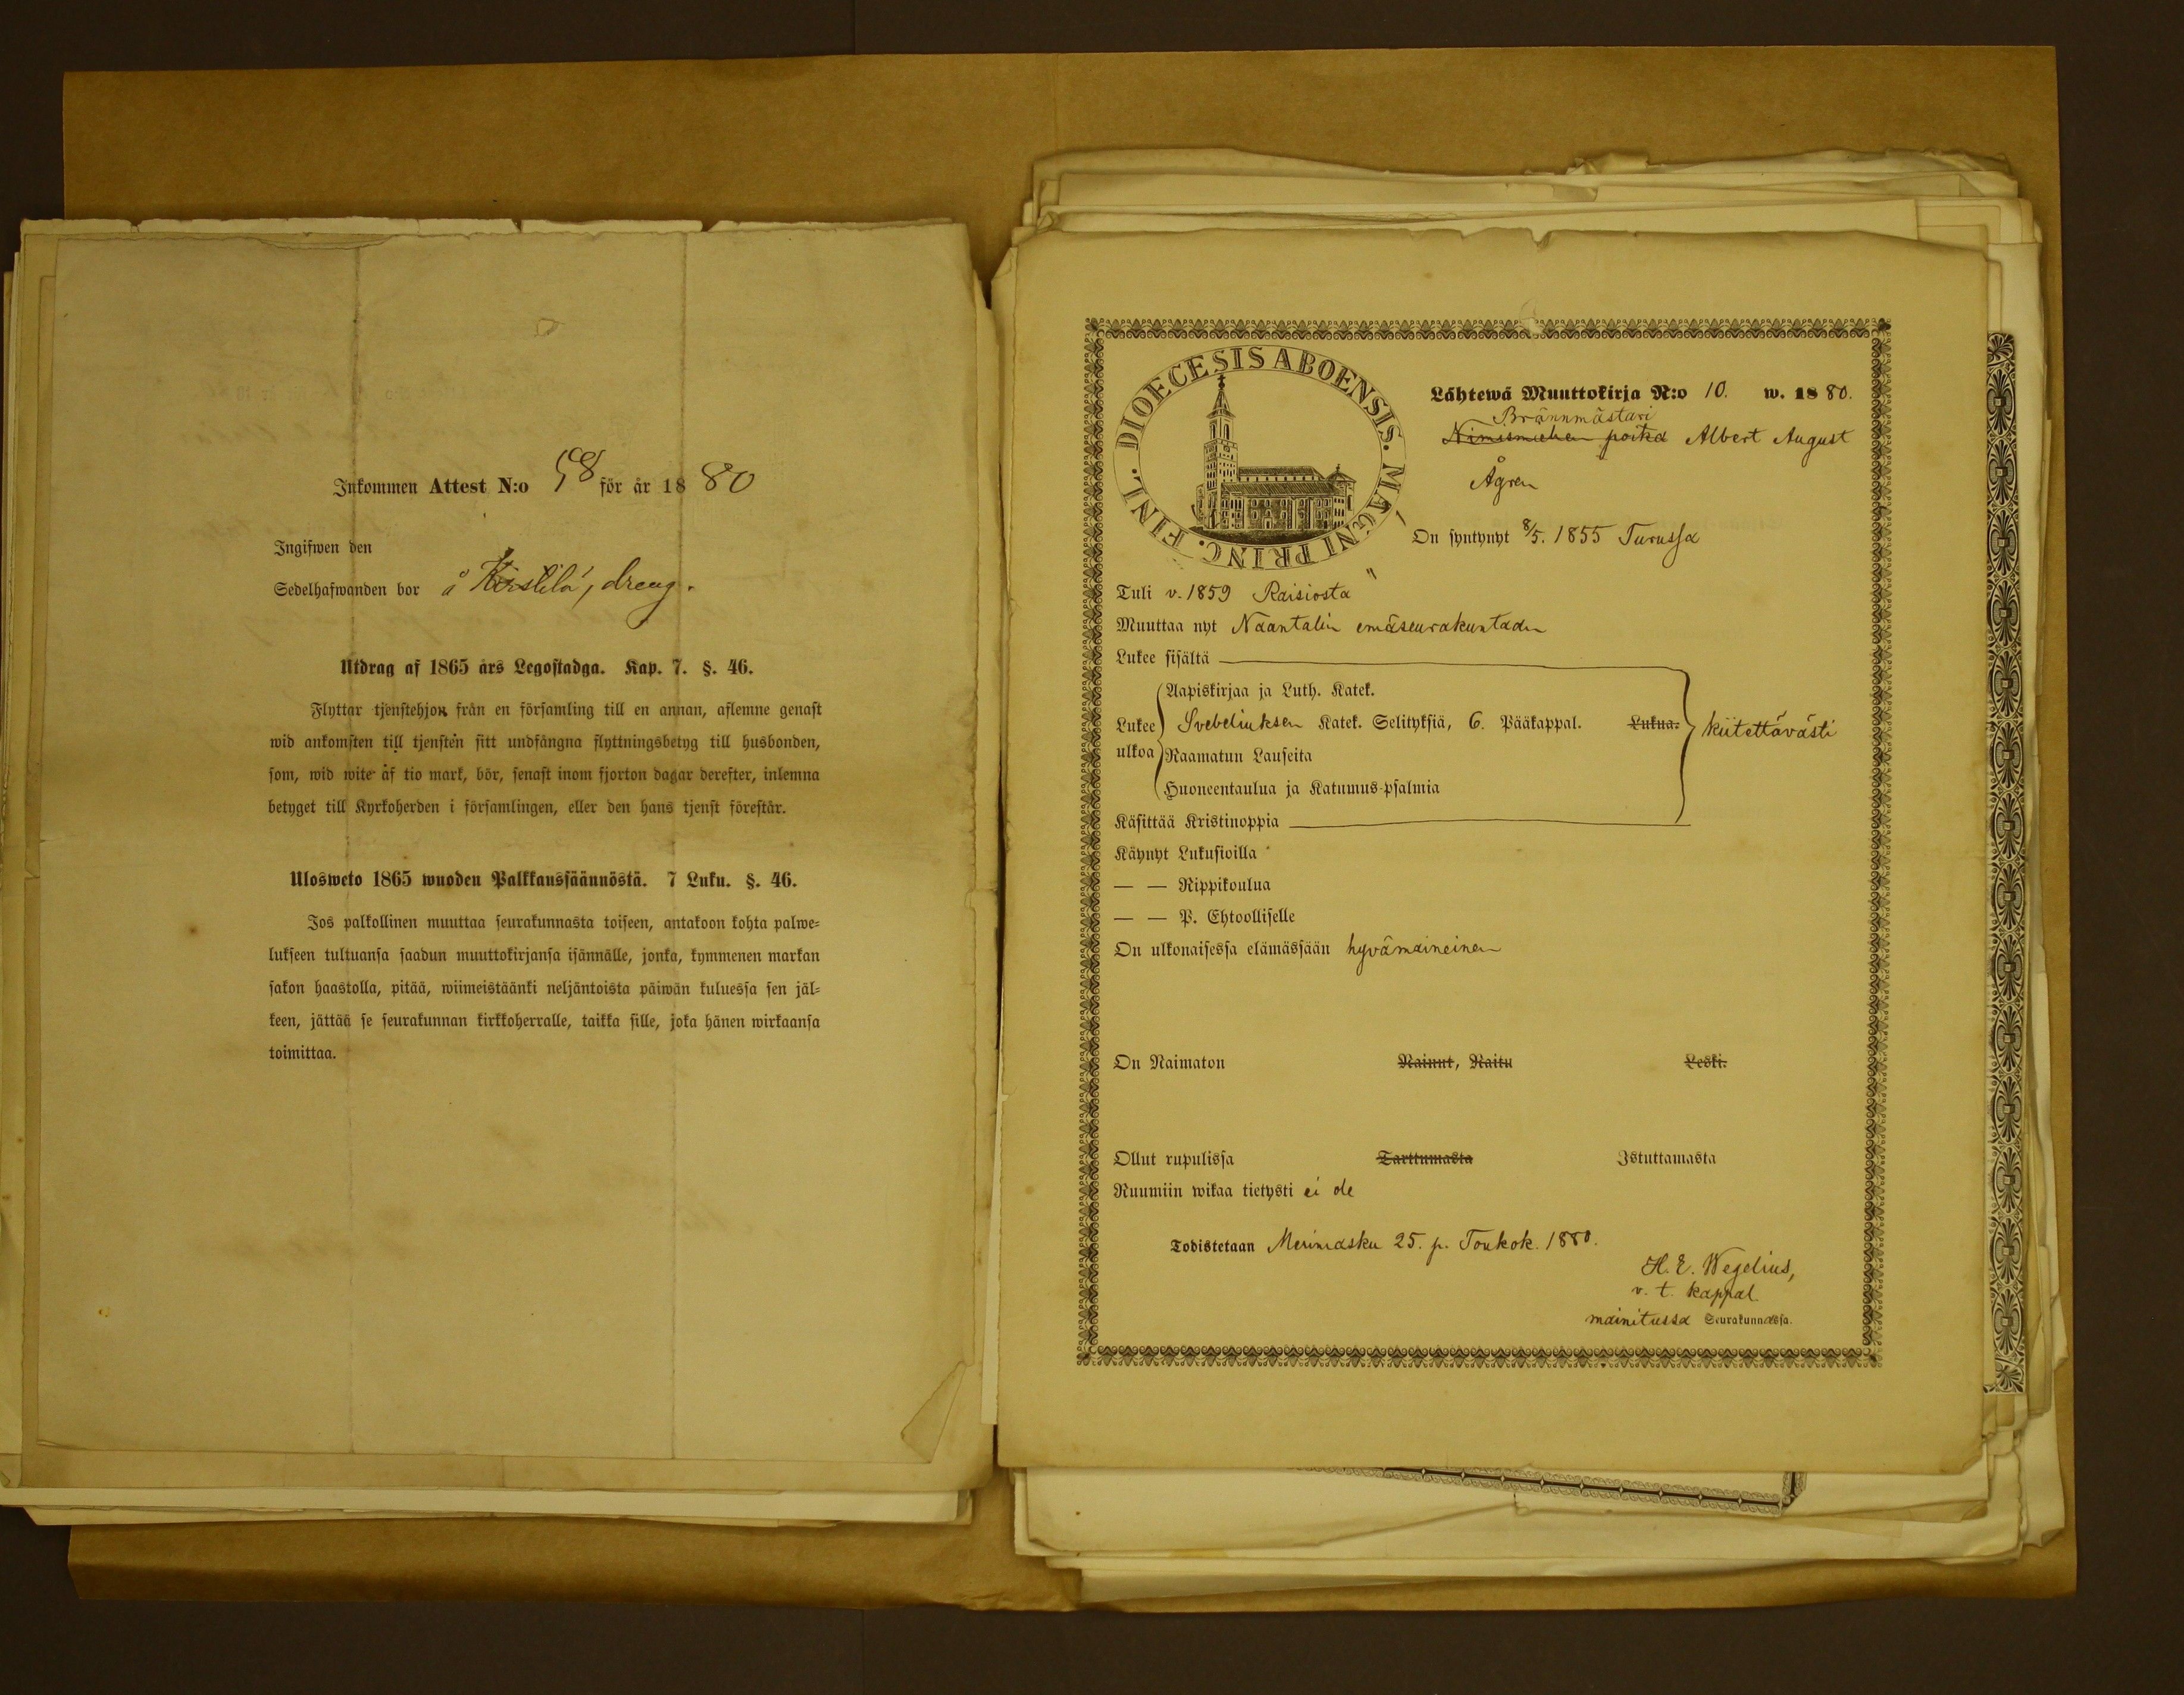 Inkommen Attest N:o 58 för år 1880
Ingifwen den
Sedelhafwanden bor å Kerstilä, dreng.
Utdrag af 1865 års Legostadga. Kap. 7. §. 46.
Flyttar tjenstehjon från en församling till en annan, aflemne genast
wid ankomsten till tjensten sitt undfångna flyttningsbetyg till husbonden,
som, wid wite af tio mark, bör, senast inom fjorton dagar derefter, inlemna
betyget till Kyrkoherden i församlingen, eller den hans tjenst förestår.
Ulosweto 1865 wuoden Palkkaussäännöstä. 7 Luku. §. 46.
Jos palkollinen muuttaa seurakunnasta toiseen, antakoon kohta palwe=
lukseen tultuansa saadun muuttokirjansa isännälle, jonka, kymmenen markan
sakon haastolla, pitää, wiimeistäänki neljäntoista päiwän kuluessa sen jäl=
keen, jättää se seurakunnan kirkkoherralle, taikka sille, joka hänen wirkaansa
toimittaa.
DIOECESIS ABOENSIS. MAGNI PRINC. FINL.
Lähtewä Muuttokirja N:o 10. w. 1880.
Brännmästari
Nimismiehen poika Albert August
Ågren
On syntynyt 8/5. 1855 Turussa
Tuli v. 1859 Raisiosta
Muuttaa nyt Naantalin emäseurakuntaan
Lukee sisältä
Aapiskirjaa ja Luth. Katek.
Lukee Svebeliuksen Katek. Selityksiä, 6. Pääkappal. Lukua. kiitettävästi
ulkoa Raamatun Lauseita
Huoneentaulua ja Katumus-psalmia
Käsittää Kristinoppia
Käynyt Lukusioilla
— — Rippikoulua
— — P. Ehtoolliselle
On ulkonaisessa elämässään hyvämaineinen
On Naimaton Nainut, Naitu Leski.
Ollut rupulissa Tarttumasta Istuttamasta
Ruumiin wikaa tietysti ei ole
Todistetaan Merimasku 25. p. Toukok. 1880.
H. E. Wegelius,
v. t. kappal.
mainitussa Seurakunnassa.